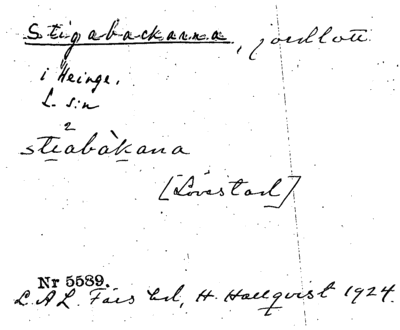 Stigabackarna, jordlott
i Heinge.
L. s:n
2
stiabàkana
[Lövestad]
Nr 5589.
L.A.L. Färs hd, H. Hallqvist 1924.